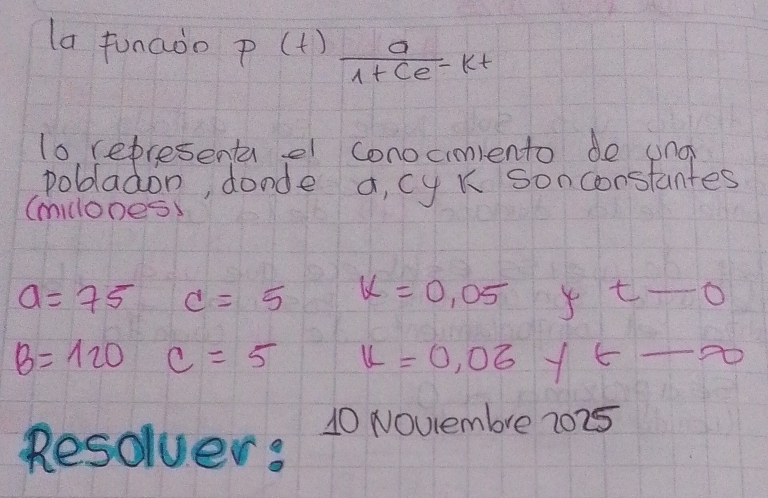 la función p (t) a
1+Ce-kt
lo representa el conocimiento de una
poblacion, donde a, c y K son constantes
(millones)
a=75 c = 5 K = 0,05 y t — 0
B=120 C = 5 K = 0,06 y t — ∞
10 Noviembre 2025
Resolver: